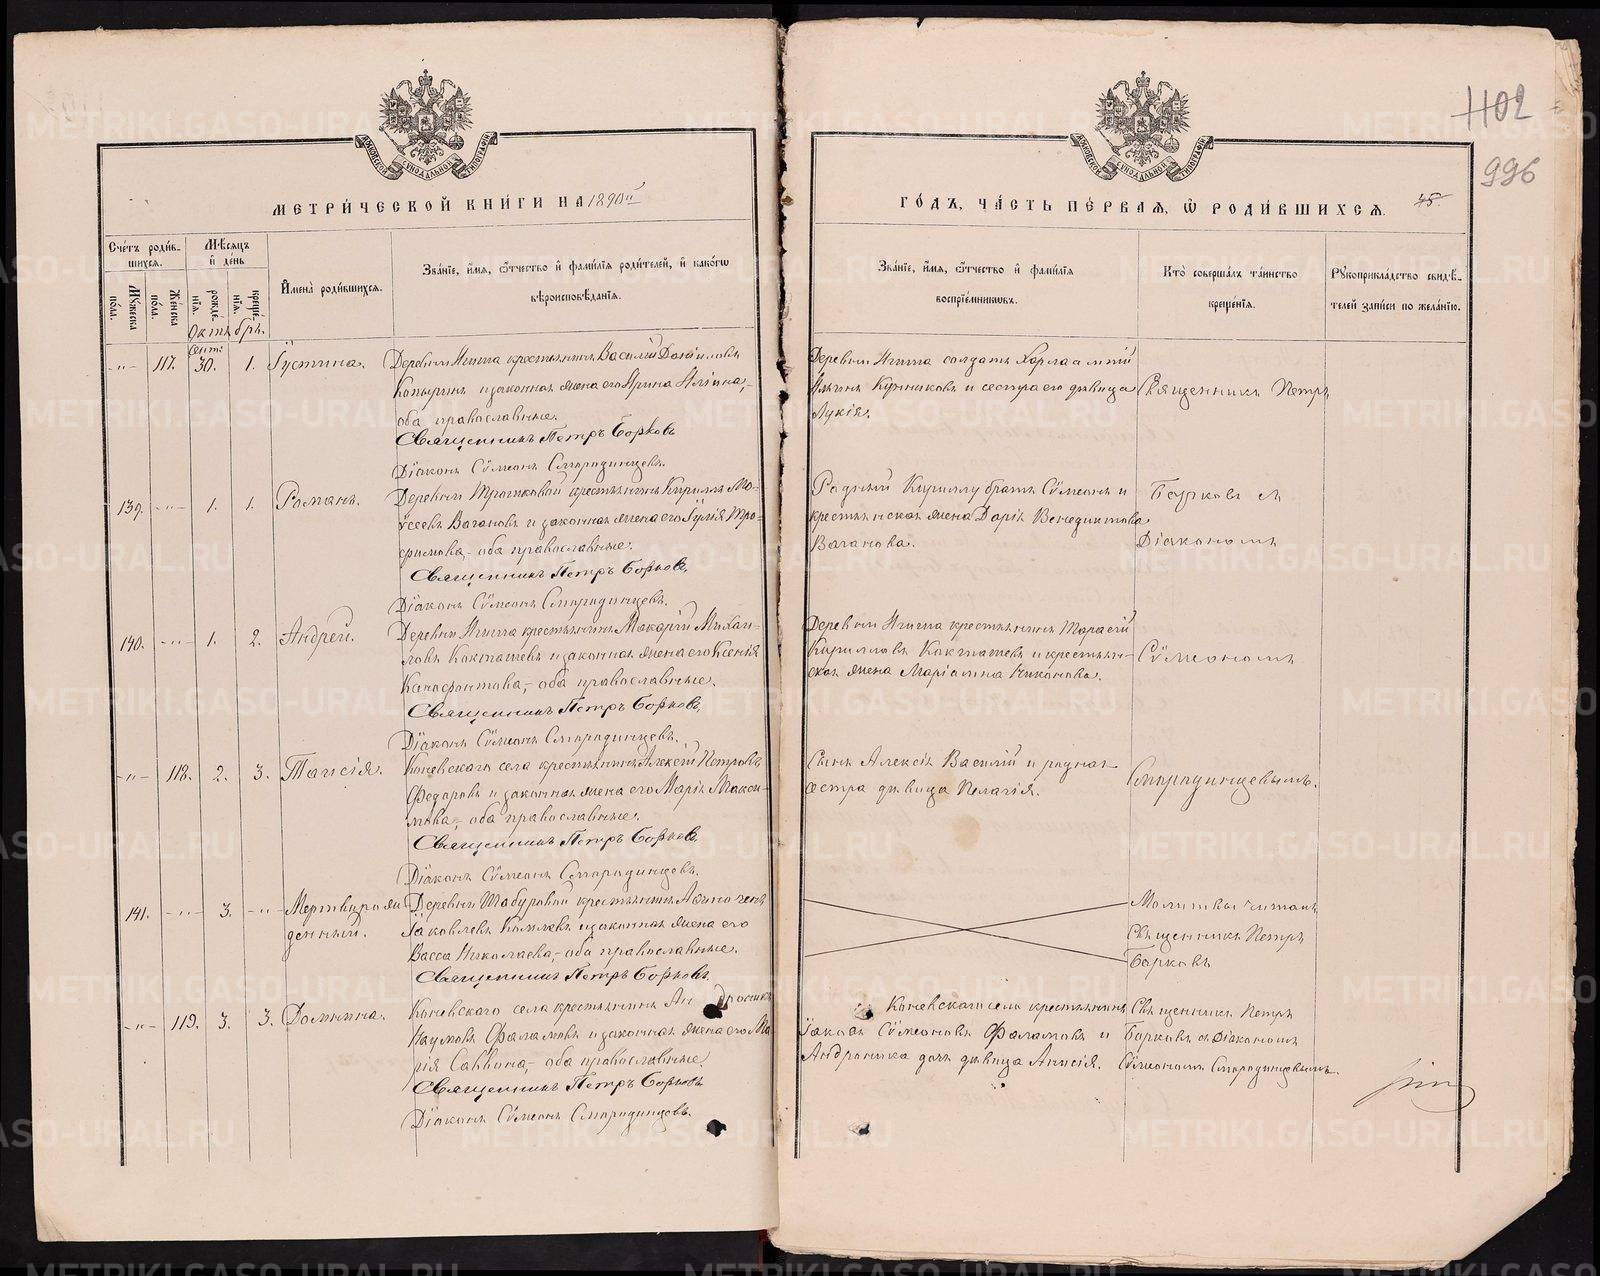 МОСКОВСКОЙ СѴНОДАЛЬНОЙ ТИПОГРАФІИ
МЕТРИ́ЧЕСКОЙ КНИ́ГИ НА 1890й
Сче́тъ роди́в-
шихсѧ.
Мѣ́сѧцъ
и҆ де́нь
Мꙋ́жеска
по́ла.
Же́нска
по́ла.
рожде́-
нїѧ.
креще́-
нїѧ.
И҆мена̀ роди́вшихсѧ.
Зва́нїе, и҆́мѧ, ѻ҆́тчество и҆ фами́лїѧ роди́телей, и҆ како́гѡ
вѣроисповѣ́данїѧ.
Октябрь.
Сент:
-"- 117. 30. 1. Іустина. Деревни Ягиша крестьянинъ Василій Даниловъ
Копыринъ и законная жена его Ирина Ильина,-
оба православные.
Священникъ Петръ Борковъ
Діаконъ Сѵмеонъ Смородинцевъ.
139. -"- 1. 1. Романъ. Деревни крестьянинъ Кириллъ Мо-
ѵсеевъ Вагановъ и законная жена его Іулія Тро-
фимова,- оба православные.
Священникъ Петръ Борковъ.
Діаконъ Сѵмеонъ Смородинцевъ.
140. -"- 1. 2. Андрей. Деревни крестьянинъ Макарій Михаи-
ловъ и законная жена его Ксенія
оба православные.
Священникъ Петръ Борковъ.
Діаконъ Сѵмеонъ Смородинцевъ.
-"- 118. 2. 3. Таисія. Коневскаго села крестьянинъ Алексій Петровъ
Федоровъ и законная жена его Марія Макси-
мова,- оба православные.
Священникъ Петръ Борковъ.
Діаконъ Сѵмеонъ Смородинцевъ.
141. -"- 3. -"- Мертворож-
денный. Деревни крестьянинъ
Іаковлевъ и законная жена его
Васса Николаева,- оба православные.
Священникъ Петръ Борковъ.
-"- 119. 3. 3. Домнина. Коневскаго села крестьянинъ Андроникъ
Наумовъ Фаламовъ и законная жена его Ма-
рія Саввина,- оба православные.
Священникъ Петръ Борковъ
Діаконъ Сѵмеонъ Смородинцевъ.
МОСКОВСКОЙ СѴНОДАЛЬНОЙ ТИПОГРАФІИ
1102
996
ГО́ДЪ, ЧА́СТЬ ПЕ́РВАѦ, Ѡ҆ РОДИ́ВШИХСѦ. 45.
Зва́нїе, и҆́мѧ, ѻ҆́тчество и҆ фами́лїѧ
воспрїе́мниковъ.
Кто̀ соверша́лъ та́инство
креще́нїѧ.
Рꙋкоприкла́дство свидѣ́-
телей за́писи по жела́нїю.
Деревни солдатъ Харлампій
и сестра его дѣвица
Лукія.
Священникъ Петръ
Родный Кириллу братъ Сѵмеонъ и
крестьянская жена Дарія Венедиктова
Ваганова.
Борковъ съ
Діакономъ
Деревни крестьянинъ Тарасій
Кирилловъ и крестьян-
ская жена Маріамна Никонова.
Сѵмеономъ
Сынъ Алексія Василій и родная
сестра дѣвица Пелагія.
Смородинцевымъ.
Молитвы читалъ
Священникъ Петръ
Борковъ
Коневскаго села крестьянинъ
Іаковъ Сѵмеоновъ Фаламовъ и
Андроника дочь дѣвица Анисія.
Священникъ Петръ
Борковъ съ Діакономъ
Сѵмеономъ Смородинцевымъ.
METRIKI.GASO-URAL.RU